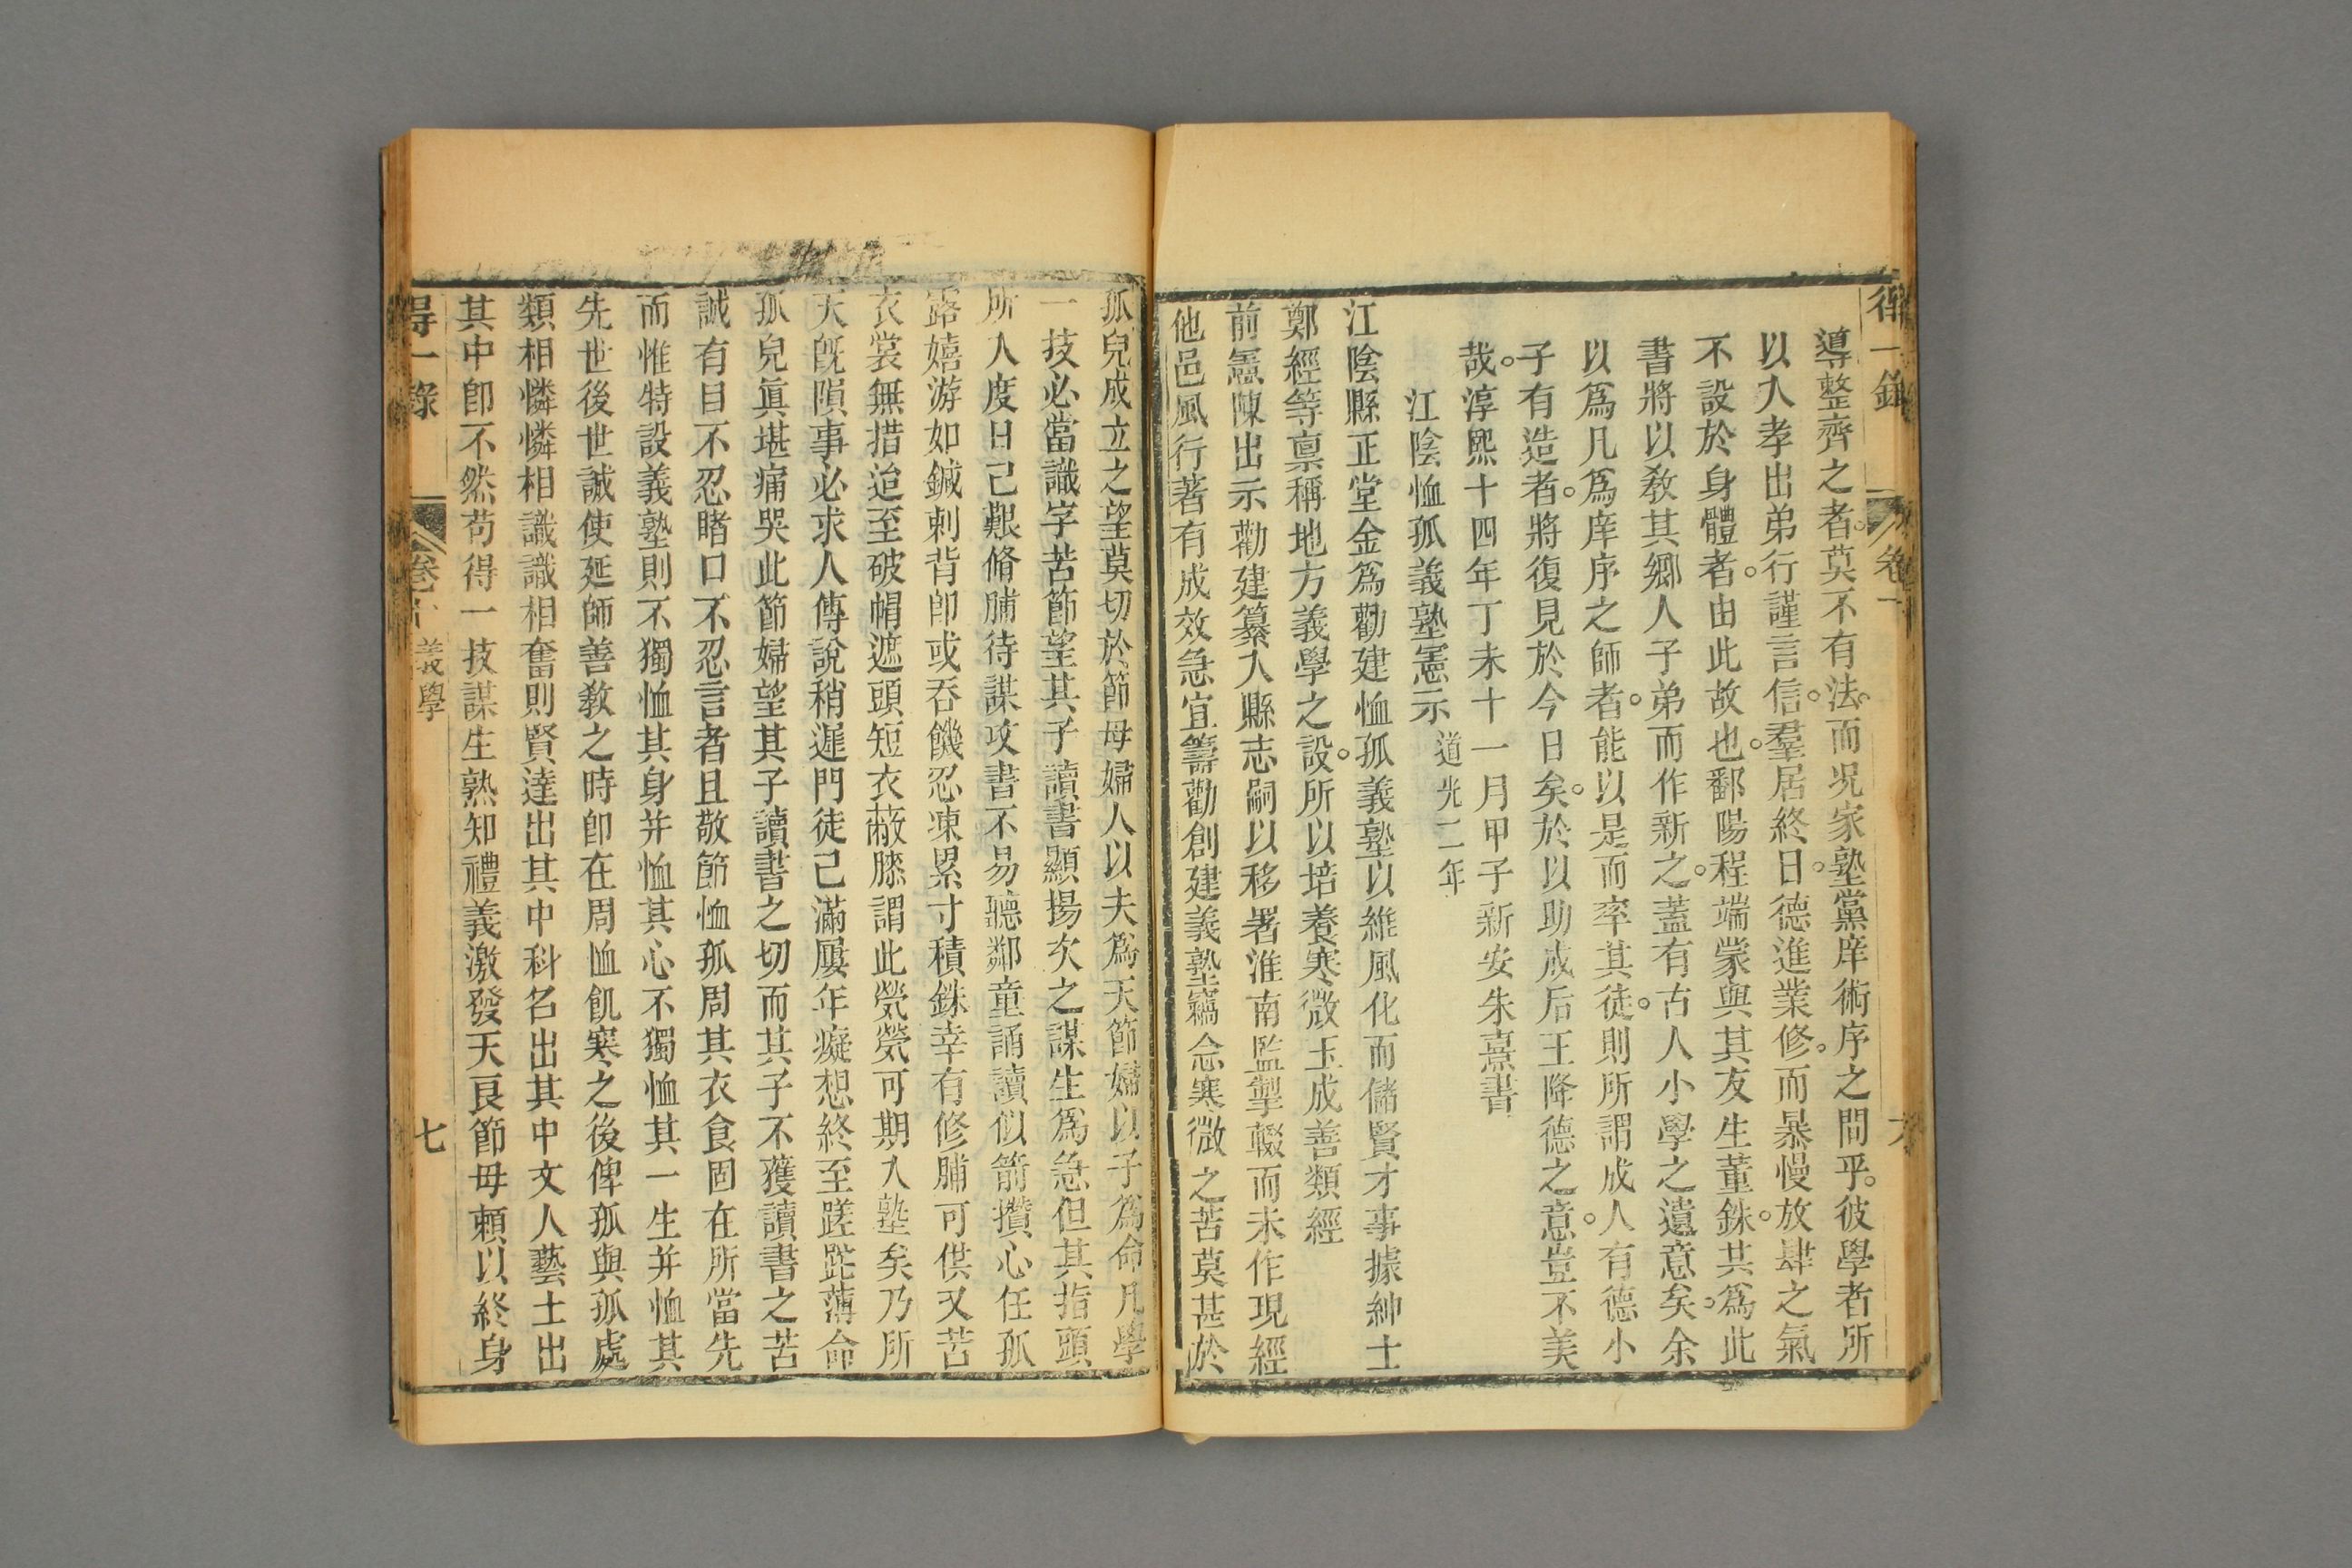 得一錄
卷一
六
導整齊之者。莫不有法。而況家塾黨庠術序之間乎。彼學者所
以入孝出弟行謹言信。羣居終日。德進業修。而暴慢放肆之氣
不設於身體者。由此故也。鄱陽程端蒙與其友生董銖。共爲此
書將以敎其鄉人子弟而作新之。蓋有古人小學之遺意矣。余
以爲凡爲庠序之師者。能以是而率其徒。則所謂成人有德小
子有造者。將復見於今日矣。於以助成后王降德之意。豈不美
哉。淳熙十四年丁未十一月甲子新安朱熹書
江陰恤孤義塾憲示 道光二年
江陰縣正堂金爲勸建恤孤義塾以維風化而儲賢才事據紳士
鄭經等禀稱地方義學之設。所以培養寒微玉成善類經
前憲陳出示勸建纂入縣志嗣以移署淮南監掣輟而未作現經
他邑風行著有成效急宜籌勸創建義塾竊念寒微之苦莫甚於
孤兒成立之望莫切於節母婦人以夫爲天節婦以子爲命凡學
一技必當識字苦節望其子讀書顯揚次之謀生爲急但其指頭
所入度日己艱脩脯待謀攻書不易聽鄰童誦讀似箭攢心任孤
露嬉游如鍼刺背卽或吞饑忍凍累寸積銖幸有修脯可供又苦
衣裳無措迨至破帽遮頭短衣蔽膝謂此煢煢可期入塾矣乃所
天旣隕事必求人傳說稍遲門徒己滿屢年癡想終至蹉跎薄命
孤兒眞堪痛哭此節婦望其子讀書之切而其子不獲讀書之苦
誠有目不忍睹口不忍言者且敬節恤孤周其衣食固在所當先
而惟特設義塾則不獨恤其身并恤其心不獨恤其一生并恤其
先世後世誠使延師善敎之時卽在周恤飢寒之後俾孤與孤處
類相憐憐相識識相奮則賢達出其中科名出其中文人藝士出
其中卽不然苟得一技謀生熟知禮義激發天良節母賴以終身
得一錄
卷十
義學
七